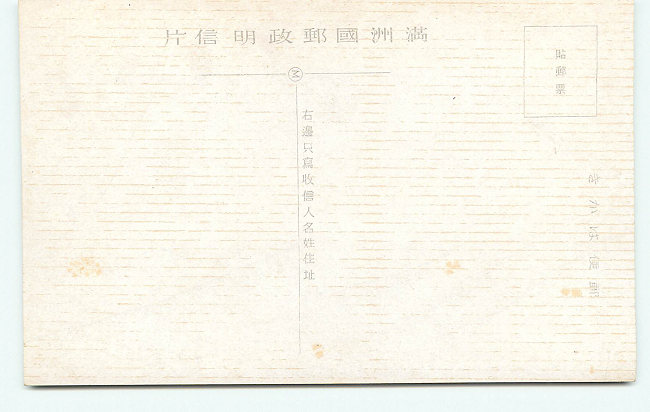 滿洲國郵政明信片
貼郵票
Ⓜ
右邊只寫收信人名姓住址
郵便はかき